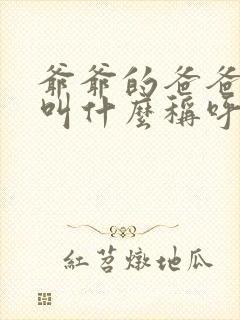 爺爺的爸爸
叫什麼稱呼
紅苕燉地瓜